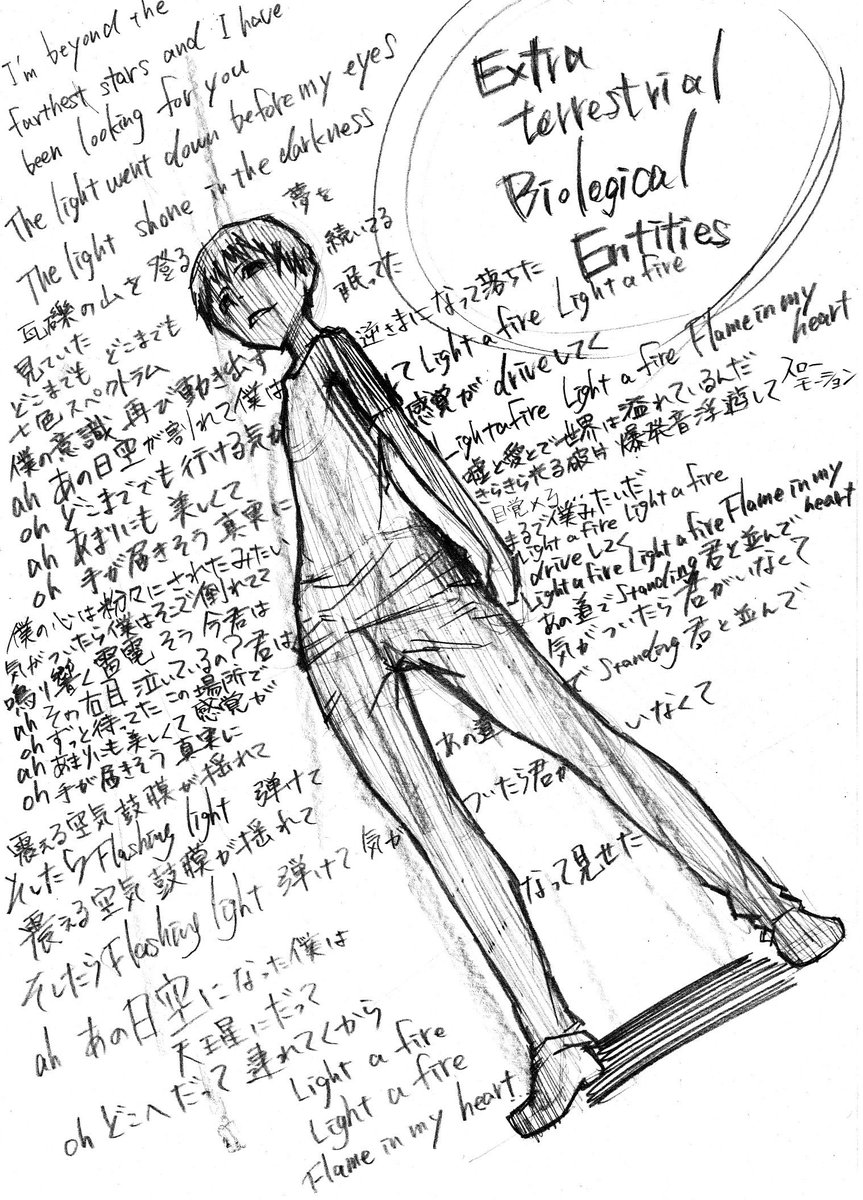 I'm beyond the
farthest stars and I have
been looking for you
The light went down before my eyes
The light shone in the darkness
Extra
terrestrial
Biological
Entities
瓦礫の山を登る
夢を
続いてる
眠ってた
見ていた
どこまでも どこまでも
七色スペクトラム
逆さまになって落ちた
僕の意識 再び動き出す
ah あの日空が割れて僕は
oh どこまででも行ける気が
ah あまりにも美しくて
oh 手が届きそう 真実に
僕の心は粉々にされたみたい
気がついたら僕はそこで倒れてて
鳴り響く雷電 そう 今君は
ah その右目 泣いているの? 君は
oh ずっと待ってた この場所で
ah あまりにも美しくて 感覚が
oh 手が届きそう 真実に
震える空気 鼓膜が揺れて
そしたら Flashing light 弾けて
震える空気 鼓膜が揺れて
そしたら Flashing light 弾けて 気が
ah あの日空になった僕は
天王星にだって
oh どこへだって 連れてくから
Light a fire
Light a fire
Flame in my heart
て Light a fire Light a fire
感覚が drive してく
Light a fire Light a fire Flame in my
heart
嘘と愛とで世界は溢れているんだ
爆発音浮遊して スロー
モーション
まるで僕みたいだ
Light a fire Light a fire
drive してく
Light a fire Light a fire Flame in my
heart
あの道で Standing 君と並んで
気がついたら君がいなくて
で Standing 君と並んで
あの道
いなくて
ついたら君が
なって見せた